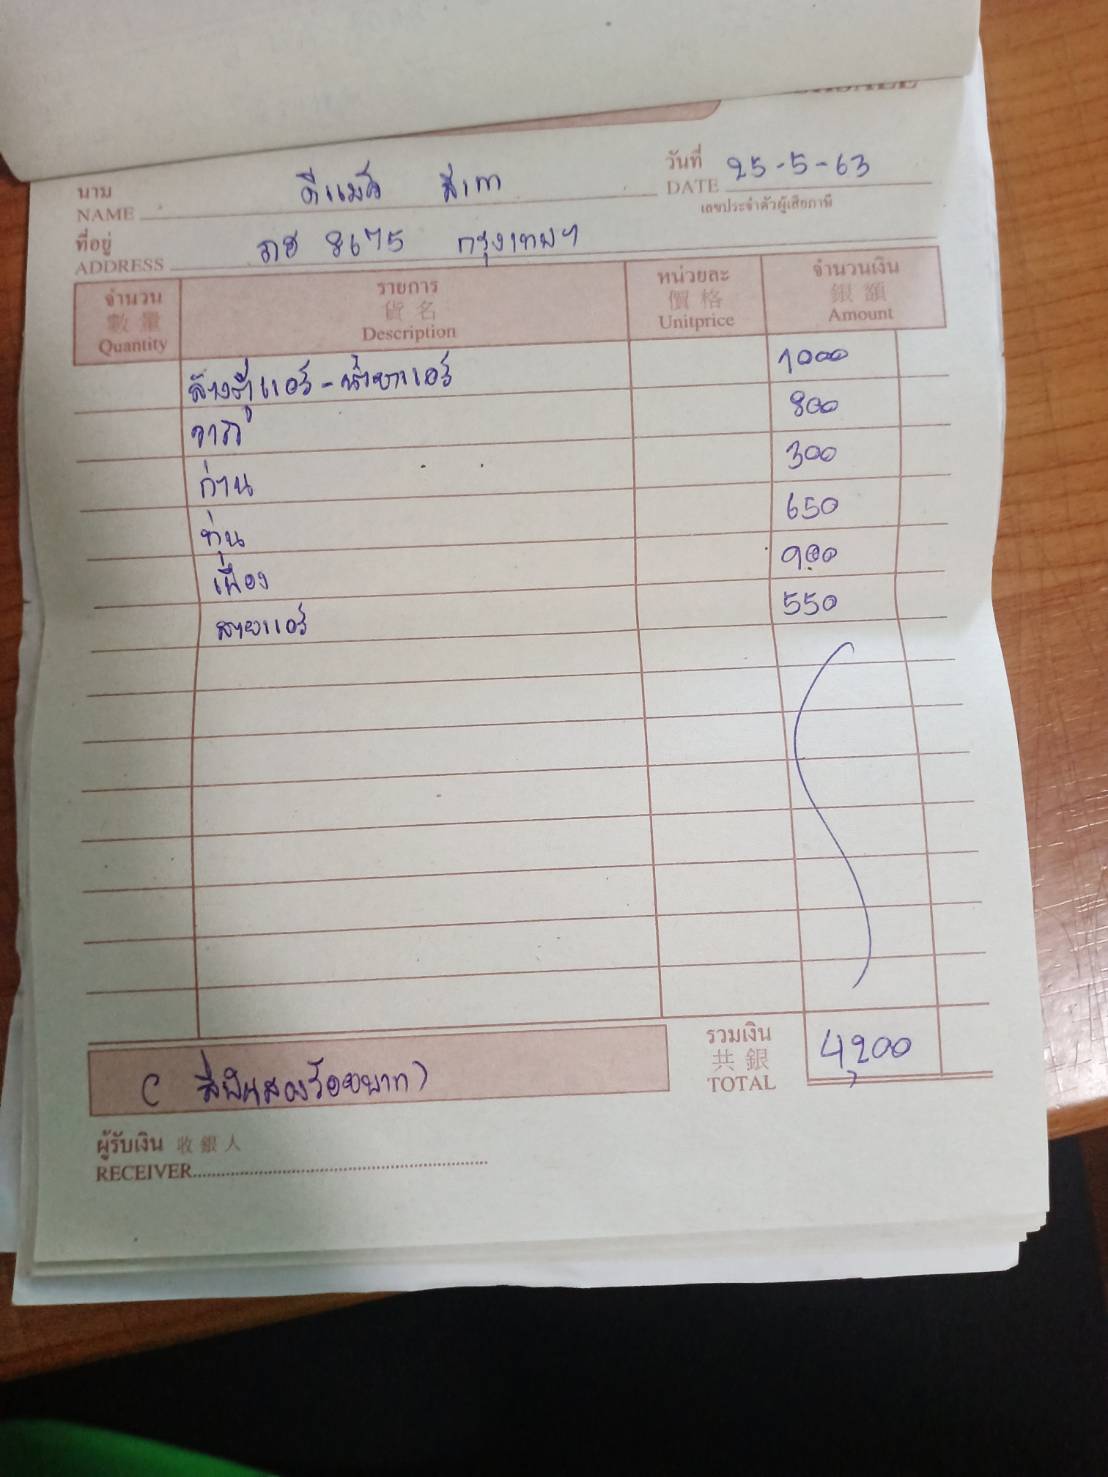 นาม
NAME ดีแม็ก สีเทา
วันที่
DATE 25-5-63
เลขประจำตัวผู้เสียภาษี
ที่อยู่
ADDRESS 8675 กรุงเทพฯ
จำนวน รายการ หน่วยละ จำนวนเงิน
數量 貨名 價格 銀額
Quantity Description Unitprice Amount
ล้างตู้แอร์ - น้ำยาแอร์ 1000
800
ถ่าน 300
ทุ่น 650
เฟือง 900
สายแอร์ 550
รวมเงิน
共銀
TOTAL 4,200
( สี่พันสองร้อยบาท )
ผู้รับเงิน 收銀人
RECEIVER